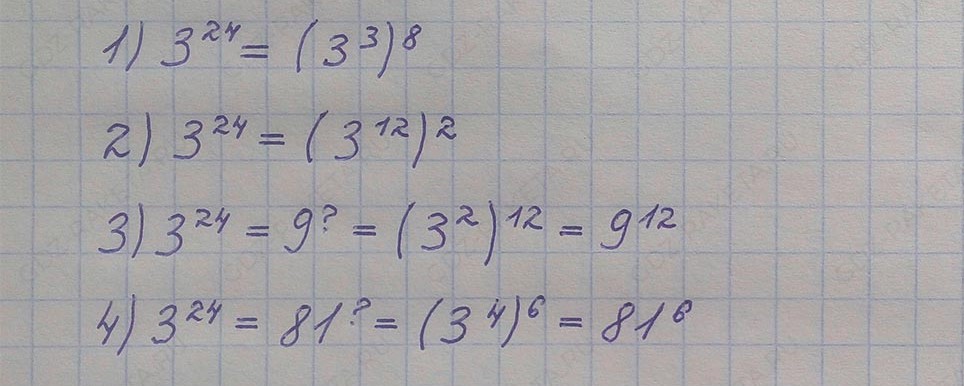 1) 3²⁴ = (3³)⁸
2) 3²⁴ = (3¹²)²
3) 3²⁴ = 9^? = (3²)¹² = 9¹²
4) 3²⁴ = 81^? = (3⁴)⁶ = 81⁶